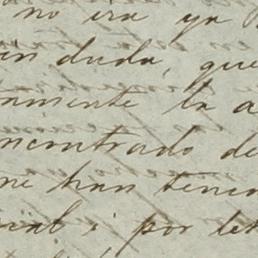 no ira ya
in duda, que
tamente la a
ncontrado de
me han tenid
ial i por let